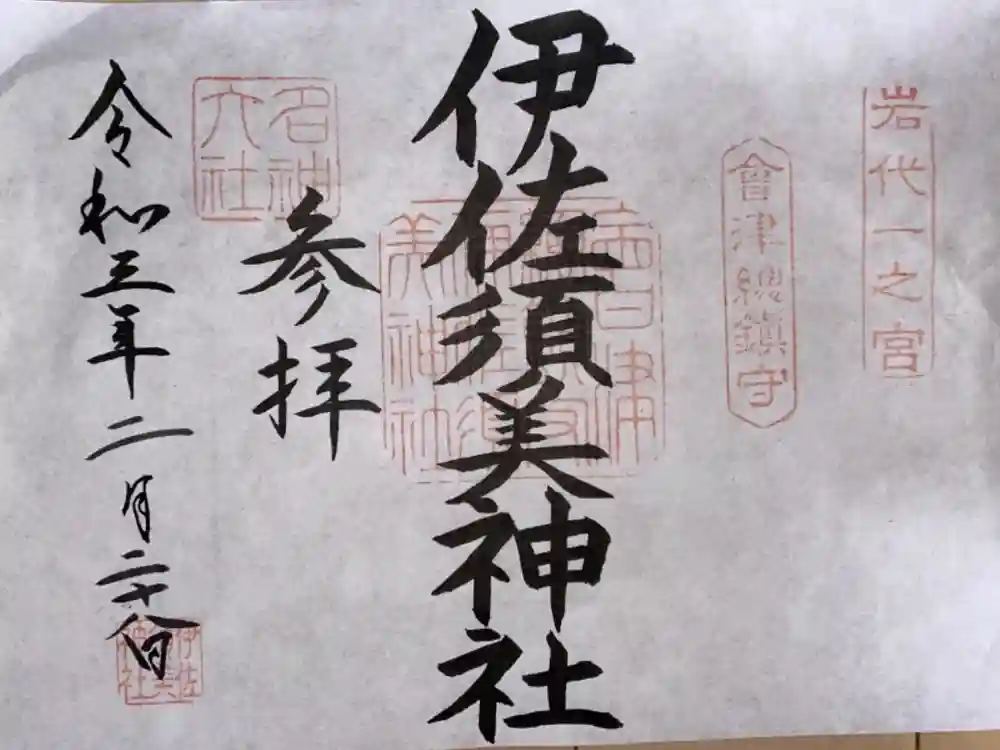 岩代一之宮
會津總鎮守
伊佐須美神社
参拝
名神
大社
令和三年二月二十八日
伊佐
須美
神社